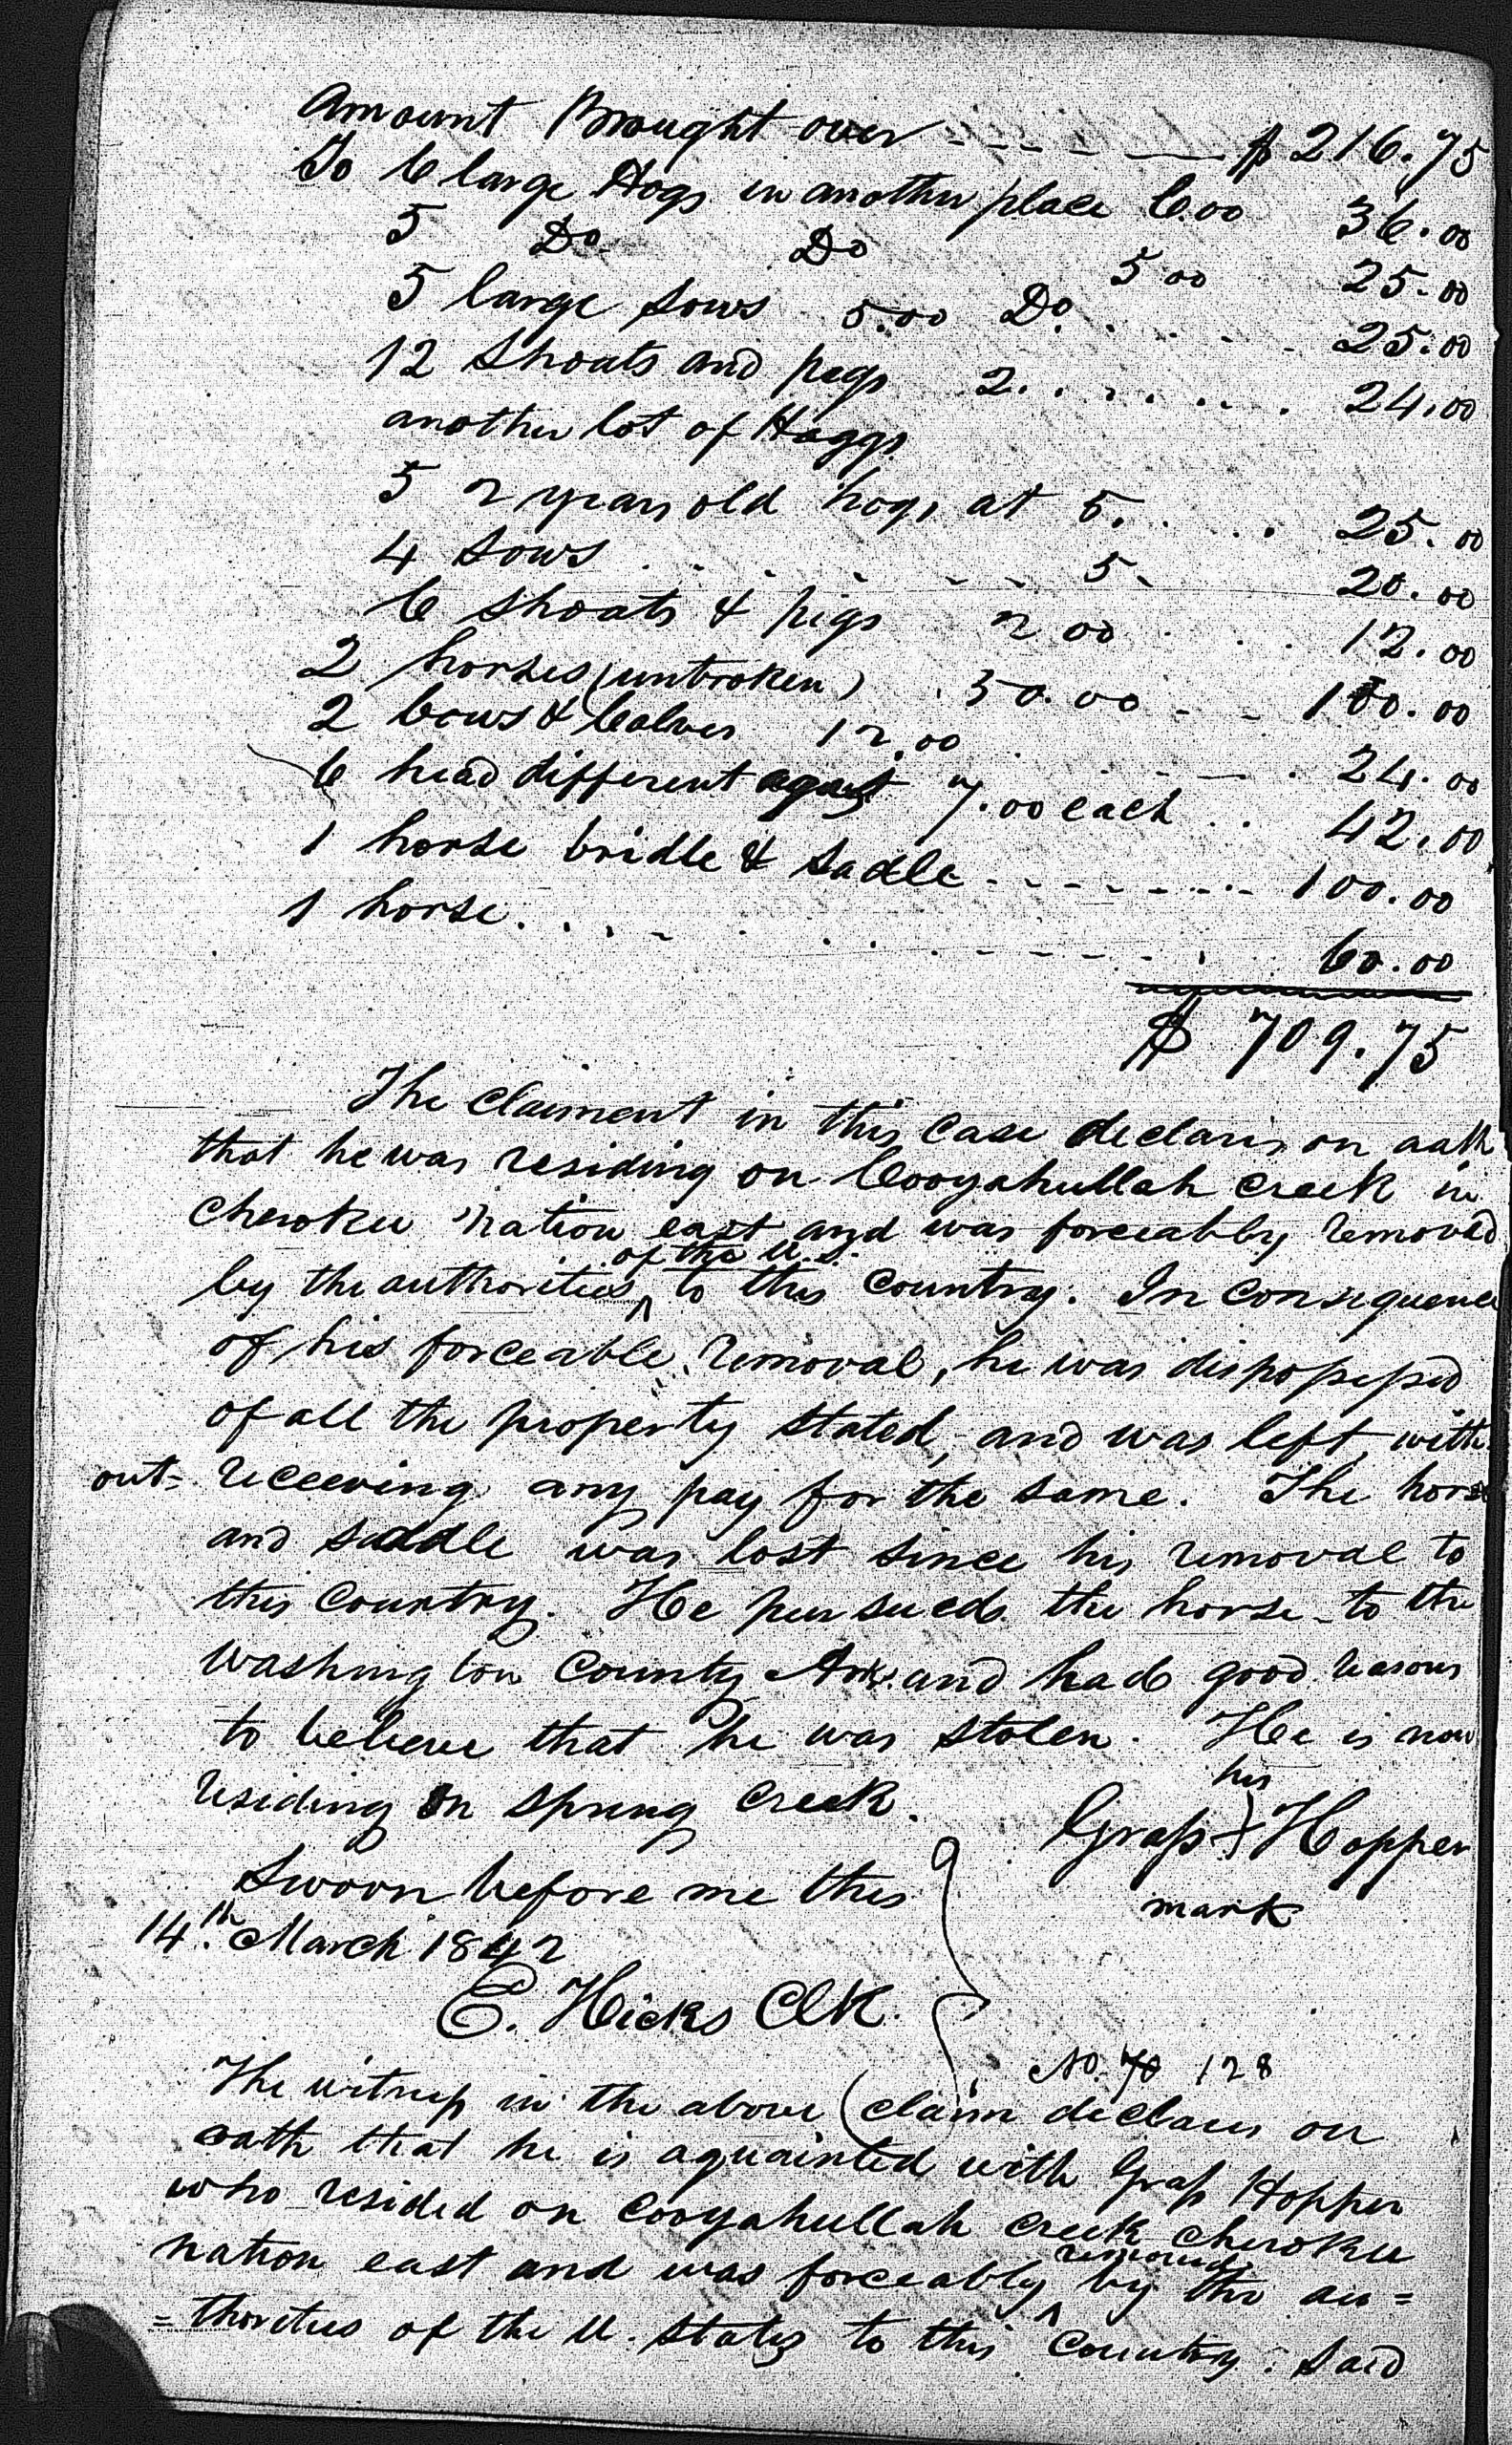 Amount Brought over - - - - $ 216.75
To 6 large Hogs in another place 6.00 36.00
5 Do Do 5 00 25.00
5 large sows 5.00 Do. . . . . 25.00
12 Shoats and pegs 2. . . . . . . 24.00
another lot of Haggs
5 2 years old hogs at 5. . . . 25.00
4 Sows . . - . - - - 5- 20.00
6 Shoats & pigs 2 00 . . . 12.00
2 horses (unbroken) . 50.00 - - 100.00
2 Cows & Calves 12.00 . . - - - . 24.00
6 head different 7.00 each . . 42.00
1 horse bridle & Sadle - - - - - - - 100.00
1 horse . . . . - . . . - - - - - . 60.00
$ 709.75
The claiment in this case declares on oath
that he was residing on Cooyahullah creek in
cherokee nation east and was forceably removed
of the U.S.
by the authorities ^ to this country. In consequence
of his forceable removal, he was dispossessed
of all the property stated, and was left with
out= receeving any pay for the same. The horse
and saddle was lost since his removal to
this country. He pursued the horse to the
Washington County Ark. and had good reasons
to believe that he was stolen. He is now
residing on Spring Creek.
his
Grass + Hopper
mark
Sworn before me this
14.th March 1842
E. Hicks Clk.
No. 70 128
The witness in the above (claim declares on
oath that he is aquainted with Grass Hopper
who resided on Cooyahullah creek cherokee
removed
nation east and was forceably ^ by the au=
=thorities of the U. States to this country. Said